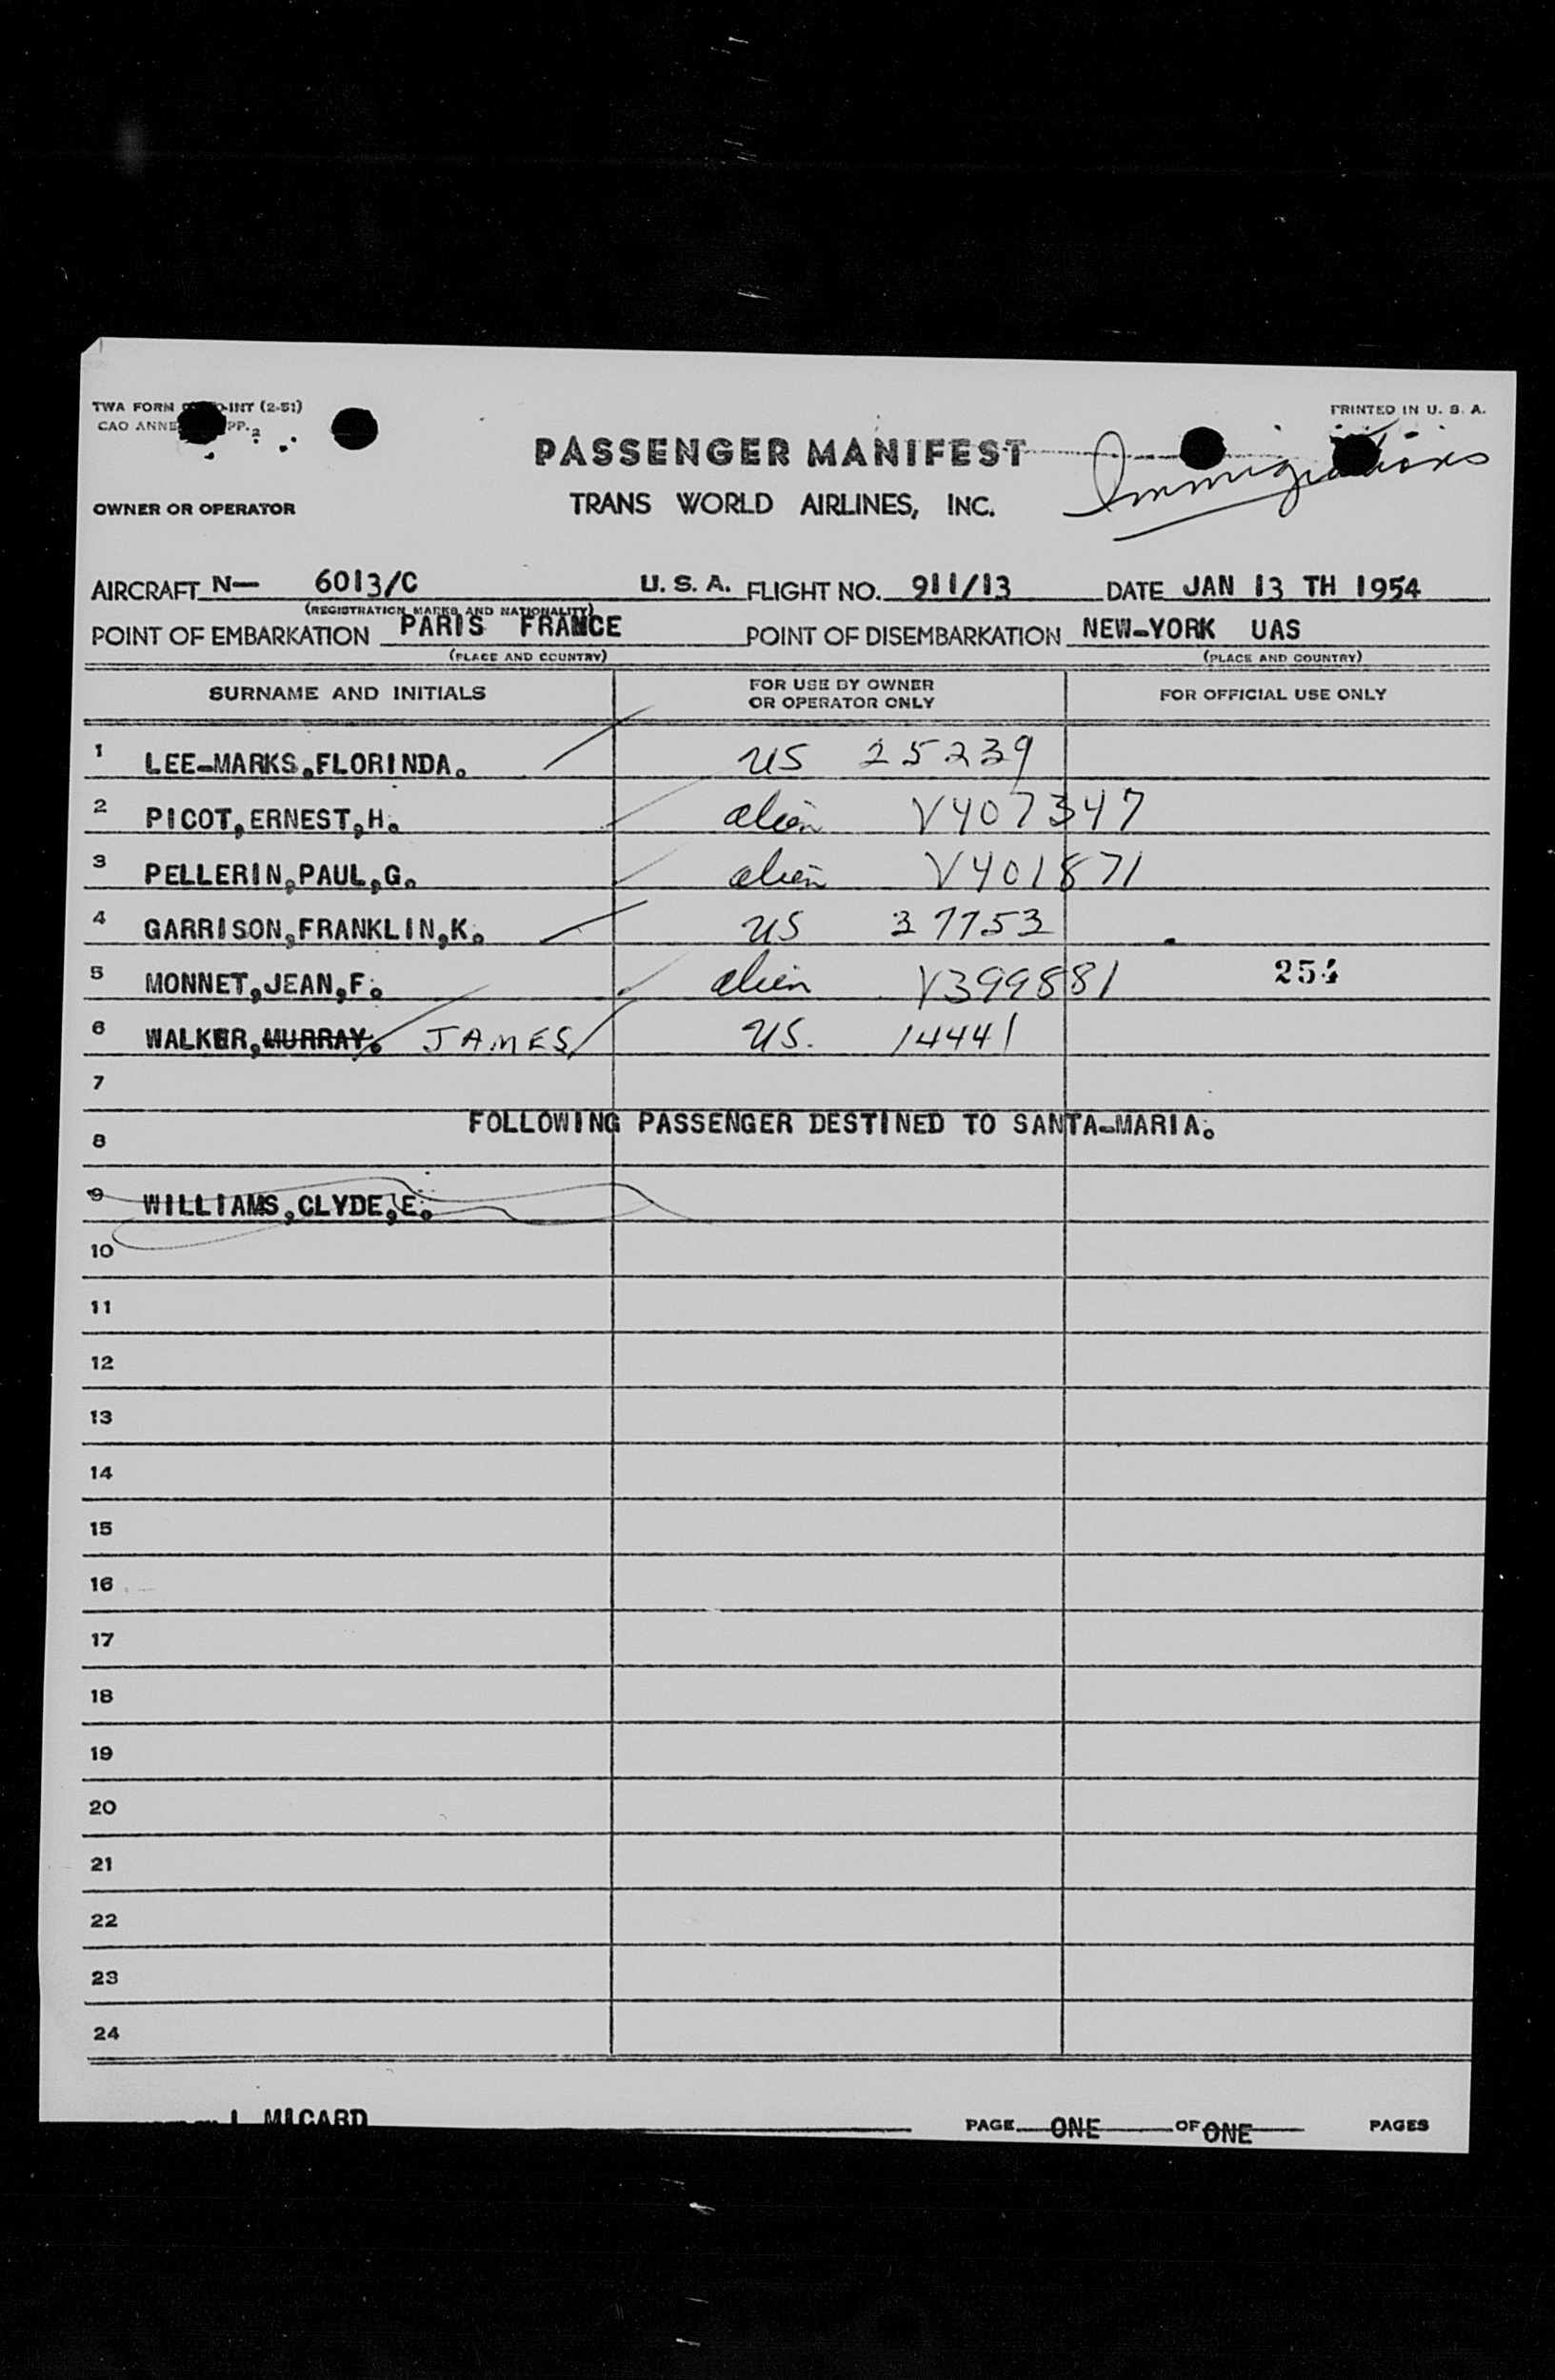 TWA FORM INT (2-51)
PRINTED IN U. S. A.
CAO ANNE PP. 2
PASSENGER MANIFEST
Immigrations
OWNER OR OPERATOR
TRANS WORLD AIRLINES, INC.
AIRCRAFT N— 6013/C U. S. A. FLIGHT NO. 911/13 DATE JAN 13 TH 1954
(REGISTRATION MARKS AND NATIONALITY)
POINT OF EMBARKATION PARIS FRANCE POINT OF DISEMBARKATION NEW-YORK UAS
(PLACE AND COUNTRY) (PLACE AND COUNTRY)
SURNAME AND INITIALS FOR USE BY OWNER OR OPERATOR ONLY FOR OFFICIAL USE ONLY
1 LEE-MARKS,FLORINDA. US 25239
2 PICOT,ERNEST,H. alien V407347
3 PELLERIN,PAUL,G. alien V401871
4 GARRISON,FRANKLIN,K. US 37753
5 MONNET,JEAN,F. alien V399881 254
6 WALKER,MURRAY. JAMES US. 14441
7
FOLLOWING PASSENGER DESTINED TO SANTA-MARIA.
8
9 WILLIAMS,CLYDE,E.
10
11
12
13
14
15
16
17
18
19
20
21
22
23
24
MICARD PAGE ONE OF ONE PAGES